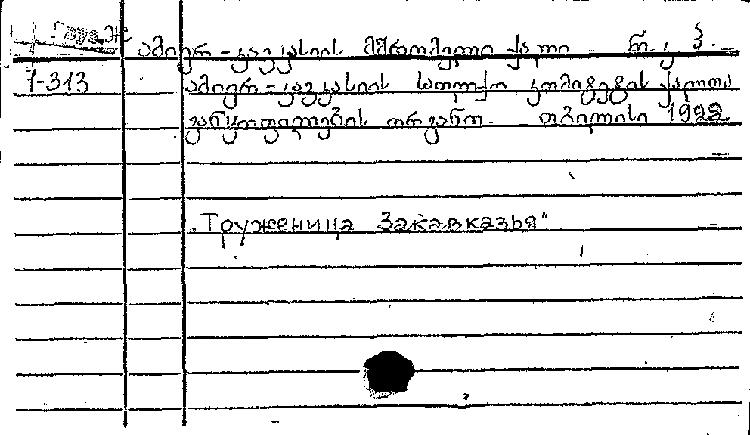 ამიერ-კავკასიის მშრომელი ქალი რ. კ. პ.
1-313 ამიერ-კავკასიის საოლქო კომიტეტის ქალთა
განყოფილების ორგანო. თბილისი 1922
„Труженица Закавказья"